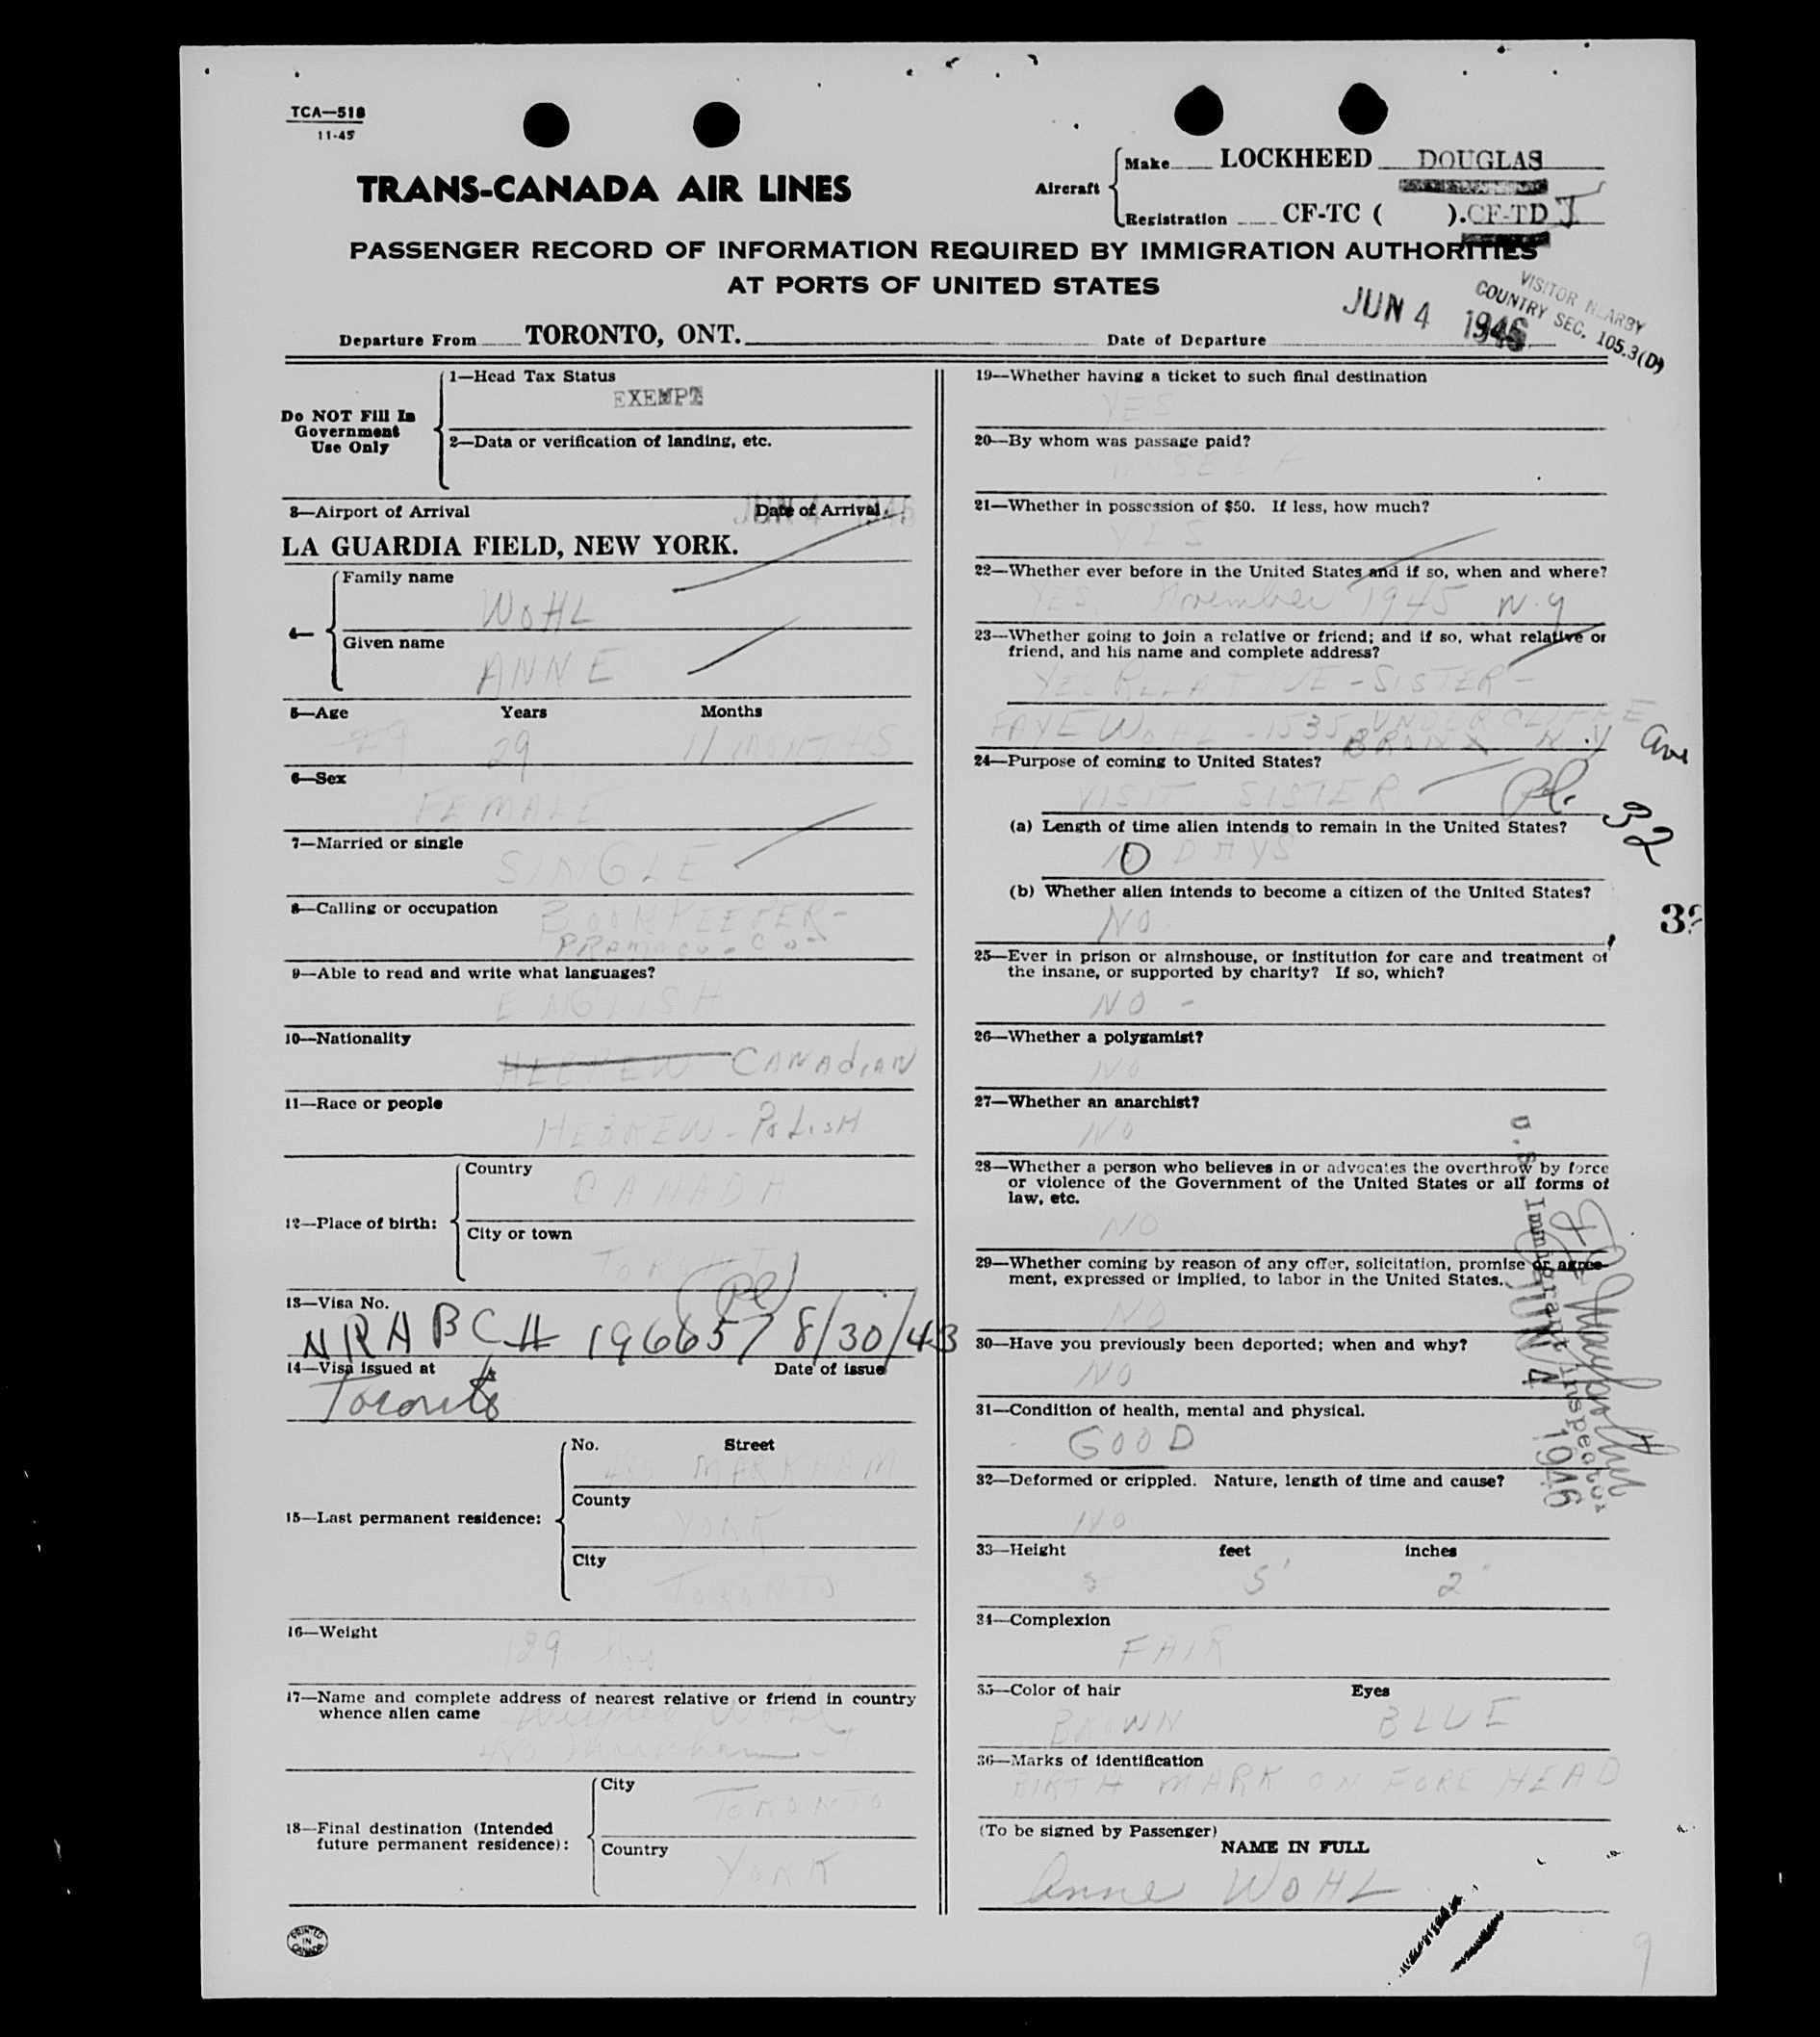 TCA—518
11-45
TRANS-CANADA AIR LINES
Aircraft
Make LOCKHEED DOUGLAS
Registration CF-TC ( ).CF-TD J
PASSENGER RECORD OF INFORMATION REQUIRED BY IMMIGRATION AUTHORITIES
AT PORTS OF UNITED STATES
VISITOR NEARBY
COUNTRY SEC. 105.3(D)
JUN 4 1946
Departure From TORONTO, ONT. Date of Departure
Do NOT Fill In
Government
Use Only
1—Head Tax Status
EXEMPT
2—Data or verification of landing, etc.
3—Airport of Arrival Date of Arrival
JUN 4 1946
LA GUARDIA FIELD, NEW YORK.
4—
Family name
WOHL
Given name
ANNE
5—Age Years Months
29 29 11 MONTHS
6—Sex
FEMALE
7—Married or single
SINGLE
8—Calling or occupation
BOOKKEEPER-
9—Able to read and write what languages?
ENGLISH
10—Nationality
HEBREW CANADIAN
11—Race or people
HEBREW - POLISH
12—Place of birth:
Country
CANADA
City or town
TORONTO
13—Visa No.
NRABC# 196657 8/30/43
14—Visa issued at Date of issue
Toronto
15—Last permanent residence:
No. Street
483 MARKHAM
County
YORK
City
TORONTO
16—Weight
129 lbs
17—Name and complete address of nearest relative or friend in country
whence alien came
Wohl
483 Markham St
18—Final destination (Intended
future permanent residence):
City
TORONTO
Country
YORK
PRINTED
IN
CANADA
19—Whether having a ticket to such final destination
YES
20—By whom was passage paid?
MYSELF
21—Whether in possession of $50. If less, how much?
YES
22—Whether ever before in the United States and if so, when and where?
YES November 1945 N.Y
23—Whether going to join a relative or friend; and if so, what relative or
friend, and his name and complete address?
YES RELATIVE - SISTER -
FAYE WOHL - 1535 UNDERCLIFFE Ave
BRONX N.Y
24—Purpose of coming to United States?
VISIT SISTER
32
(a) Length of time alien intends to remain in the United States?
10 DAYS
(b) Whether alien intends to become a citizen of the United States?
NO
25—Ever in prison or almshouse, or institution for care and treatment of
the insane, or supported by charity? If so, which?
NO -
26—Whether a polygamist?
NO
27—Whether an anarchist?
NO
28—Whether a person who believes in or advocates the overthrow by force
or violence of the Government of the United States or all forms of
law, etc.
NO
29—Whether coming by reason of any offer, solicitation, promise or agree-
ment, expressed or implied, to labor in the United States.
NO
30—Have you previously been deported; when and why?
NO
U.S. Immigrant Inspector
JUN 4 1946
31—Condition of health, mental and physical.
GOOD
32—Deformed or crippled. Nature, length of time and cause?
NO
33—Height feet inches
5 5' 2"
34—Complexion
FAIR
35—Color of hair Eyes
BROWN BLUE
36—Marks of identification
BIRTH MARK ON FOREHEAD
(To be signed by Passenger)
NAME IN FULL
Anne WOHL
9